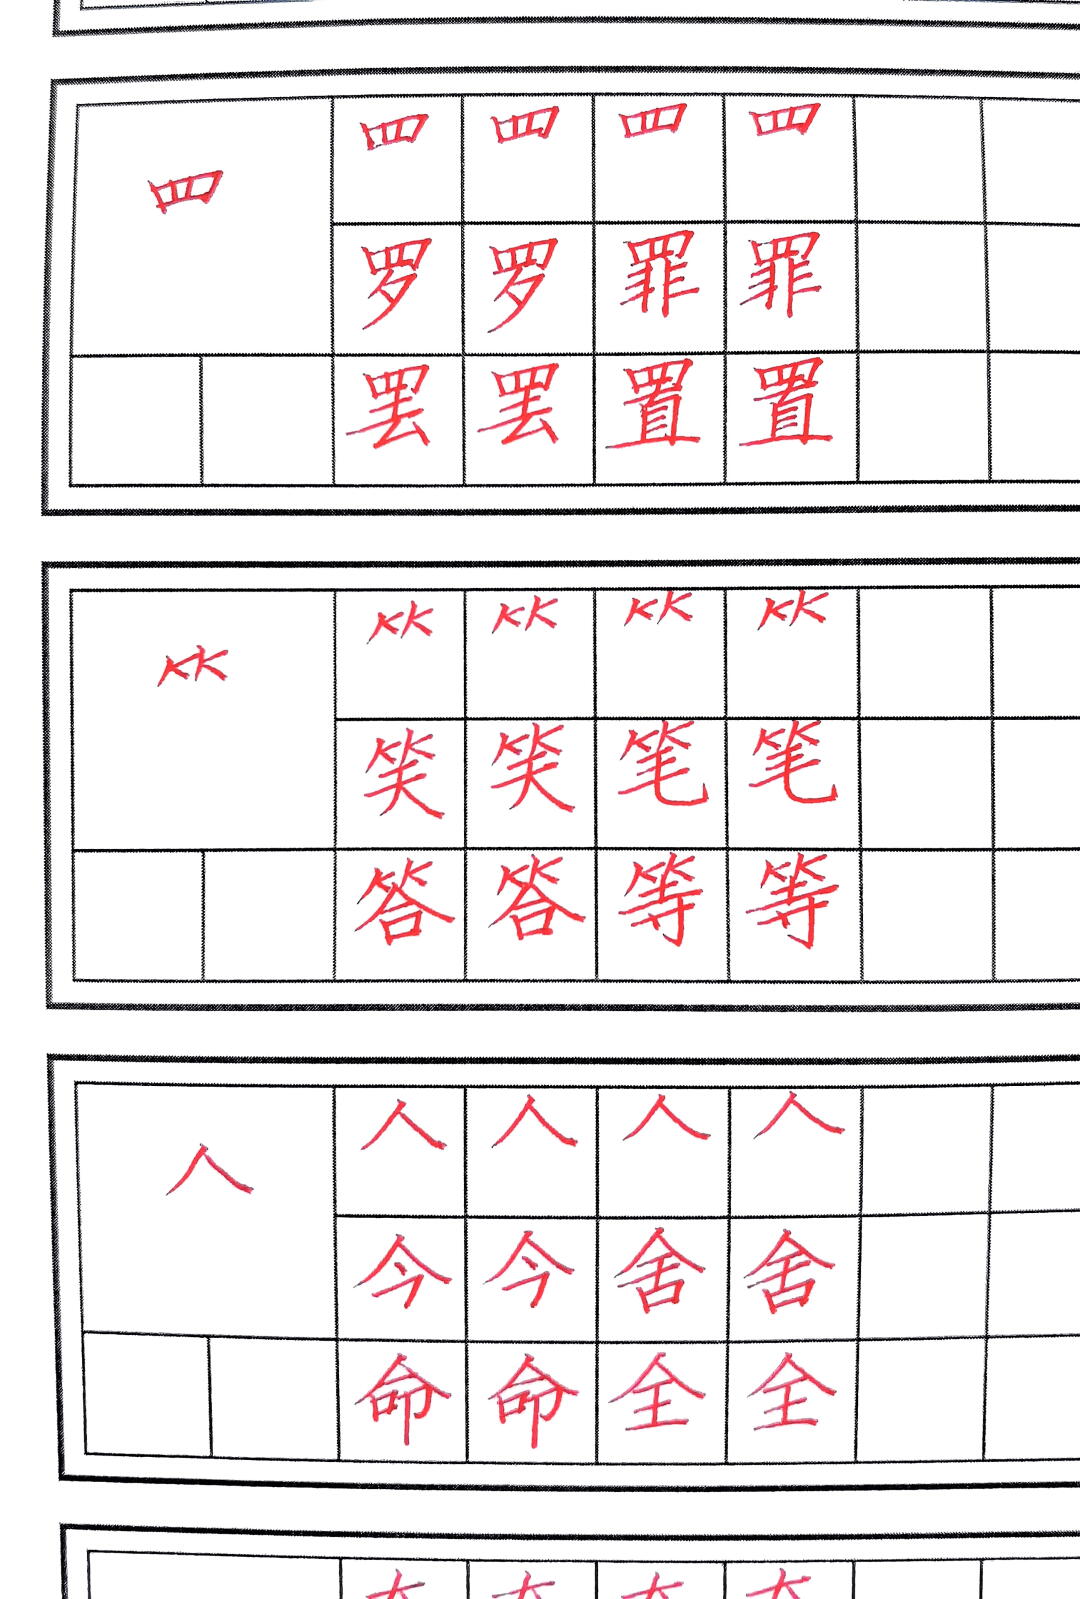 罒 罒 罒 罒 罒
罗 罗 罪 罪
罢 罢 置 置
⺮ ⺮ ⺮ ⺮ ⺮
笑 笑 笔 笔
答 答 等 等
人 人 人 人 人
今 今 舍 舍
命 命 全 全